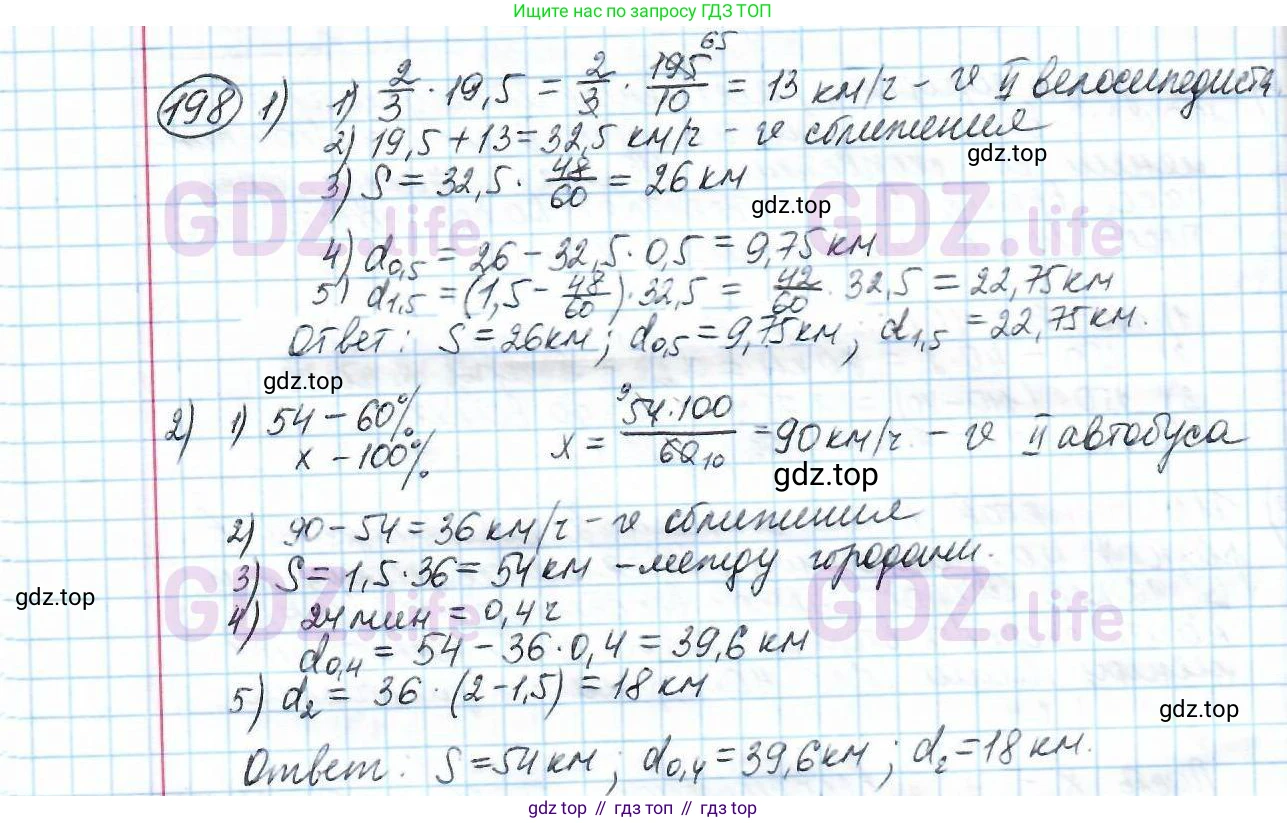 Ищите нас по запросу ГДЗ ТОП
198 1) 1) 2/3 · 19,5 = 2/3 · 195/10 65 = 13 км/ч - v II велосипедиста
2) 19,5 + 13 = 32,5 км/ч - v сближения
gdz.top
3) S = 32,5 · 48/60 = 26 км
gdz.top
GDZ.life GDZ.life
4) d0,5 = 26 - 32,5 · 0,5 = 9,75 км
5) d1,5 = (1,5 - 48/60) · 32,5 = 42/60 · 32,5 = 22,75 км
Ответ: S = 26 км; d0,5 = 9,75 км; d1,5 = 22,75 км.
gdz.top
2) 1) 54 - 60%
x - 100%
x = 9 54·100/60 10 = 90 км/ч - v II автобуса
gdz.top
2) 90 - 54 = 36 км/ч - v сближения
3) S = 1,5 · 36 = 54 км - между городами.
gdz.top
4) 24 мин = 0,4 ч
GDZ.life GDZ.life
d0,4 = 54 - 36 · 0,4 = 39,6 км
5) d2 = 36 · (2 - 1,5) = 18 км
gdz.top
Ответ: S = 54 км; d0,4 = 39,6 км; d2 = 18 км.
gdz.top // гдз топ // gdz top